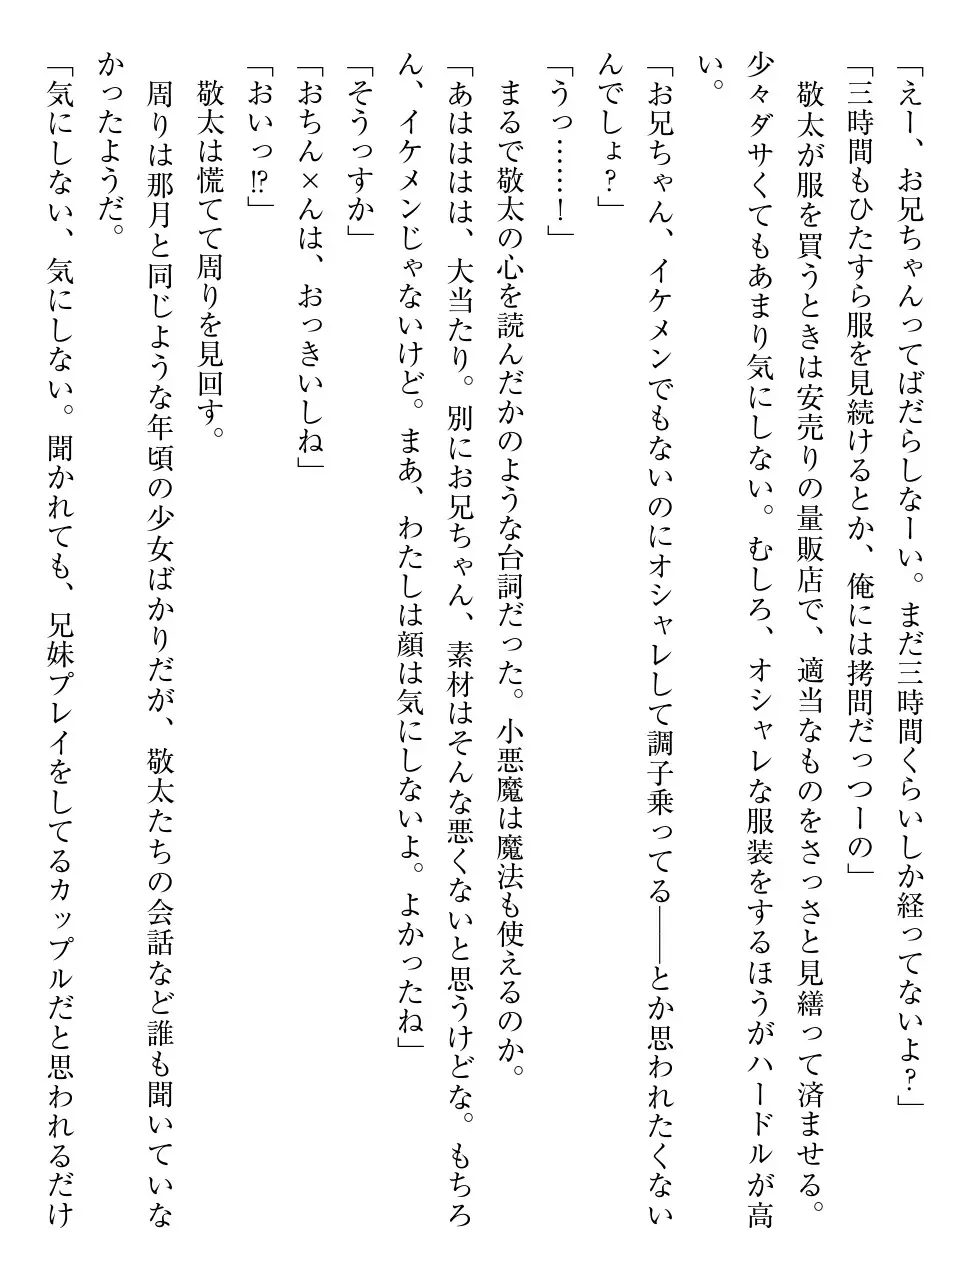 「えー、お兄ちゃんってばだらしなーい。まだ三時間くらいしか経ってないよ？」
「三時間もひたすら服を見続けるとか、俺には拷問だっつーの」
　敬太が服を買うときは安売りの量販店で、適当なものをさっさと見繕って済ませる。
少々ダサくてもあまり気にしない。むしろ、オシャレな服装をするほうがハードルが高
い。
「お兄ちゃん、イケメンでもないのにオシャレして調子乗ってる――とか思われたくない
んでしょ？」
「うっ……！」
　まるで敬太の心を読んだかのような台詞だった。小悪魔は魔法も使えるのか。
「あはははは、大当たり。別にお兄ちゃん、素材はそんな悪くないと思うけどな。もちろ
ん、イケメンじゃないけど。まあ、わたしは顔は気にしないよ。よかったね」
「そうっすか」
「おちん×んは、おっきいしね」
「おいっ!?」
　敬太は慌てて周りを見回す。
　周りは那月と同じような年頃の少女ばかりだが、敬太たちの会話など誰も聞いていな
かったようだ。
「気にしない、気にしない。聞かれても、兄妹プレイをしてるカップルだと思われるだけ